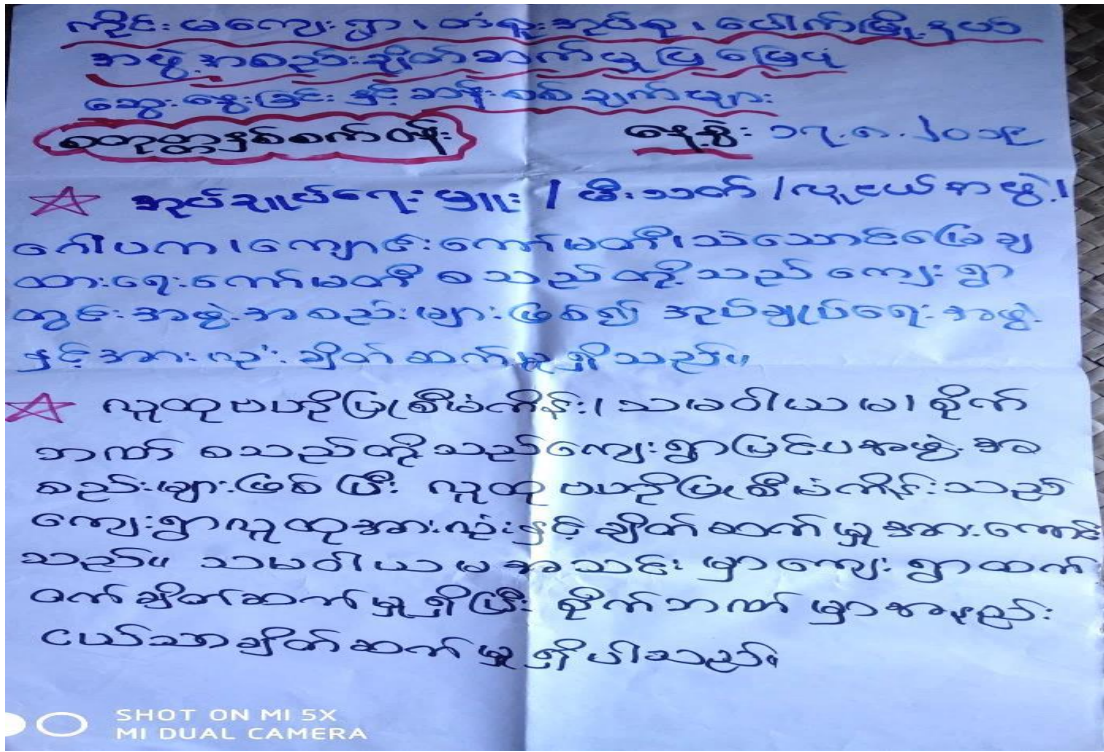 ကိုင်းမကျေးရွာ၊ တံခူးအုပ်စု၊ ပေါက်မြို့နယ်
အဖွဲ့အစည်းချိတ်ဆက်မှုပြမြေပုံ
ဆွေးနွေးခြင်းနှင့်ဆန်းစစ်ချက်များ
စတုတ္ထနှစ်စက်ဝန်း နေ့စွဲ: ၁၇.၈.၂၀၁၉
အုပ်ချုပ်ရေးမှူး / မီးသတ် / လူငယ်အဖွဲ့၊
ဂေါပက၊ ကျောင်းကော်မတီ၊ သဲသောင်မြေချ
ထားရေးကော်မတီ စသည်တို့သည် ကျေးရွာ
တွင်းအဖွဲ့အစည်းများဖြစ်၍ အုပ်ချုပ်ရေးအဖွဲ့
နှင့်အားလုံးချိတ်ဆက်မှုရှိသည်။
လူထုဗဟိုပြုစီမံကိန်း၊ သမဝါယမ၊ စိုက်
ဘဏ် စသည်တို့သည်ကျေးရွာပြင်ပအဖွဲ့အ
စည်းများဖြစ်ပြီး လူထုဗဟိုပြုစီမံကိန်းသည်
ကျေးရွာလူထုအားလုံးနှင့်ချိတ်ဆက်မှုအားကောင်း
သည်။ သမဝါယမအသင်းမှာကျေးရွာထက်
ဝက်ချိတ်ဆက်မှုရှိပြီး စိုက်ဘဏ်မှာအနည်း
ငယ်သာချိတ်ဆက်မှုရှိပါသည်။
SHOT ON MI 5X
MI DUAL CAMERA